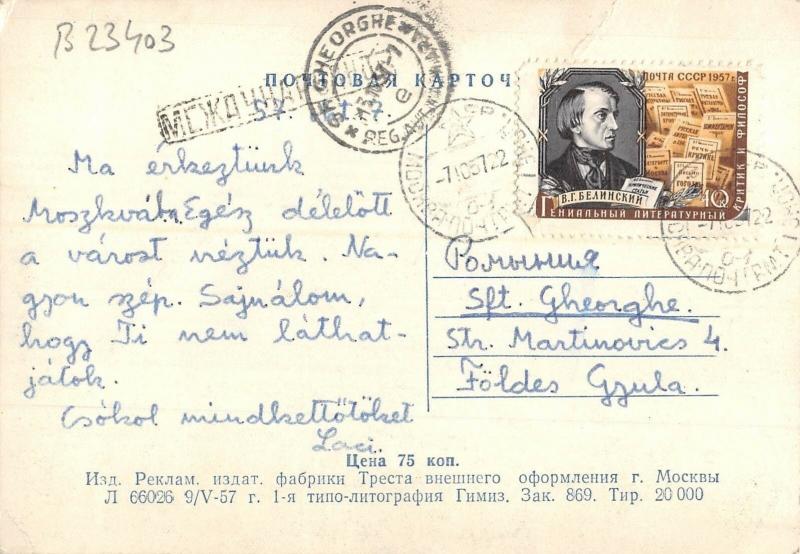 B 23403
ПОЧТОВАЯ КАРТОЧ
МЕЖДУНАР
57. okt. 7.
SFT. GHEORGHE
REG. A.
Ma érkeztünk
Moszkvába. Egész délelőtt
a várost néztük. Na-
gyon szép. Sajnálom,
hogy Ti nem láthat-
játok.
Csókol mindkettőtöket
Laci.
ПОЧТА СССР 1957г.
КРИТИК И ФИЛОСОФ
В.Г.БЕЛИНСКИЙ
ГЕНИАЛЬНЫЙ ЛИТЕРАТУРНЫЙ
40
-7.10.57.22
-7.10.57.22
Ромыния
Sft. Gheorghe.
Str. Martinovics 4.
Földes Gyula.
Цена 75 коп.
Изд. Реклам. издат. фабрики Треста внешнего оформления г. Москвы
Л 66026 9/V-57 г. 1-я типо-литография Гимиз. Зак. 869. Тир. 20 000